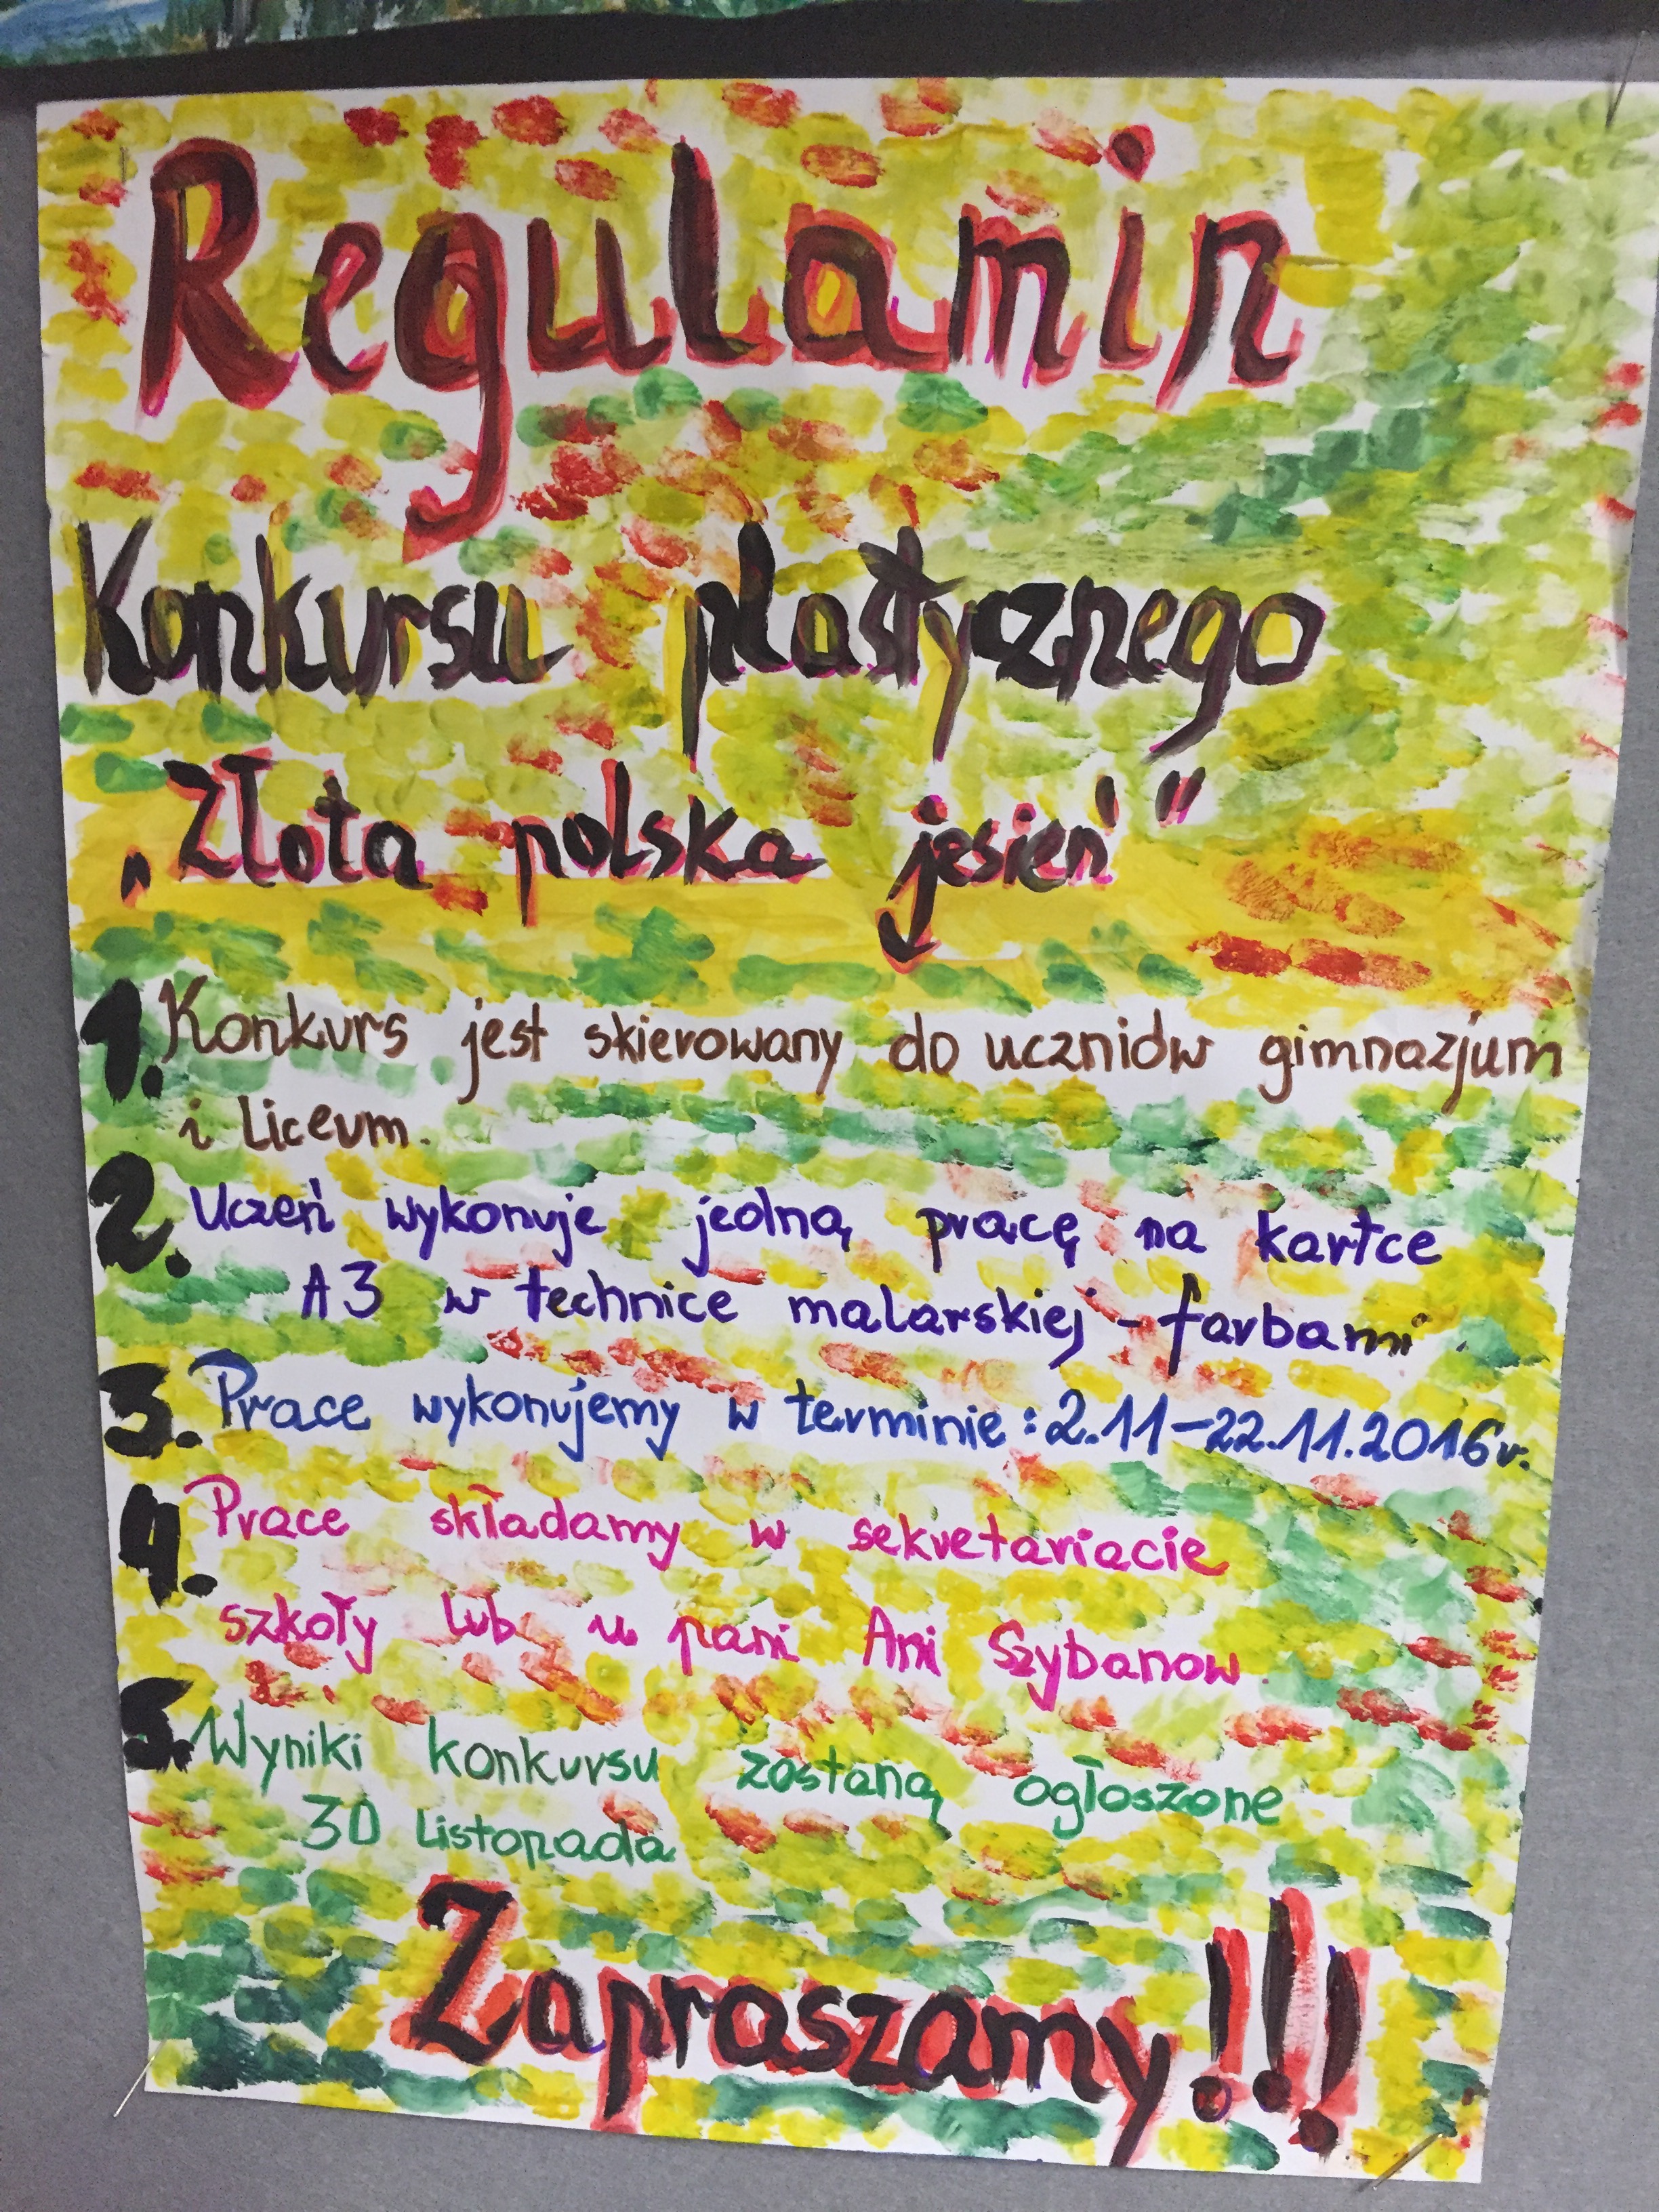 Regulamin
Konkursu plastycznego
„Złota polska jesień"
1. Konkurs jest skierowany do uczniów gimnazjum
i liceum.
2. Uczeń wykonuje jedną pracę na kartce
A3 w technice malarskiej - farbami.
3. Prace wykonujemy w terminie: 2.11-22.11.2016r.
4. Prace składamy w sekretariacie
szkoły lub u pani Ani Szybanow.
5. Wyniki konkursu zostaną ogłoszone
30 listopada
Zapraszamy!!!